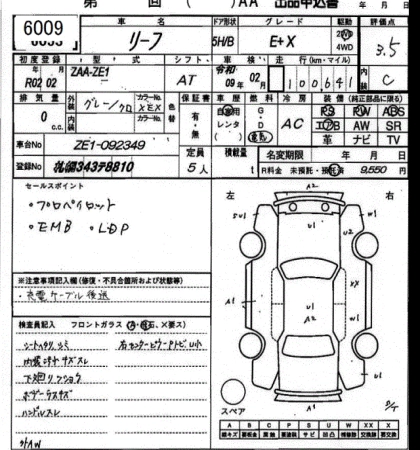 第 回 ( )AA 出品申込書 年 月 日
6009
車名 ドア形状 グレード 駆動 評価点
リーフ 5H/B E+X 2WD 4WD 3.5
初度登録 型式 シフト 車検 走行(km・マイル) 内装
R02 02 ZAA-ZE1 AT 令和 09年 02月 100641 C
排気量 外装 色 カラーNo. 色替 保証書 車歴 燃料 冷房 装備(純正部品に限る)
0 c.c. グレー/クロ XEX 有・無 自家用 レンタ G・D 電気 AC PS PW ABS
エアB AW SR
革 ナビ TV
車台No ZE1-092349 定員 積載量 名変期限 年 月 日
登録No 札幌343や8810 5人 t R料金 未預託・預託済 9,550 円
セールスポイント
・プロパイロット
・EMB ・LDP
左 右
A2
U1
W1
U2
A1
U1
A2
XX
W1
W1
U1
A1
スペア
※注意事項記入欄(修復・不具合箇所および状態等)
・充電ケーブル後送
検査員記入 フロントガラス(A・飛石、X要ス)
シートスレ、シミ 右センターピラートビ U小
内装キズスレ
下廻りフショク
ボデーキズ
ハンドルスレ
A B C P S U W XX X
線キズ 要板金 腐蝕 要塗装 サビ 凹凸 補修跡 交換跡 要交換